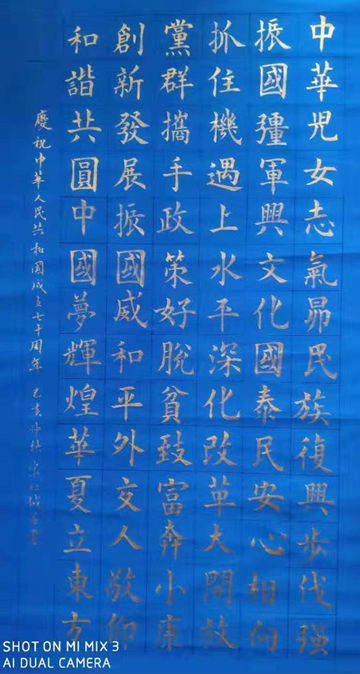 中華兒女志氣昂民族復興步伐强
振國彊軍興文化國泰民安心相向
抓住機遇上水平深化改革大開放
黨群攜手政策好脫貧致富奔小康
創新發展振國威和平外交人敬仰
和諧共圓中國夢輝煌華夏立東方
慶祝中華人民共和國成立七十周年 己亥仲秋
SHOT ON MI MIX 3
AI DUAL CAMERA